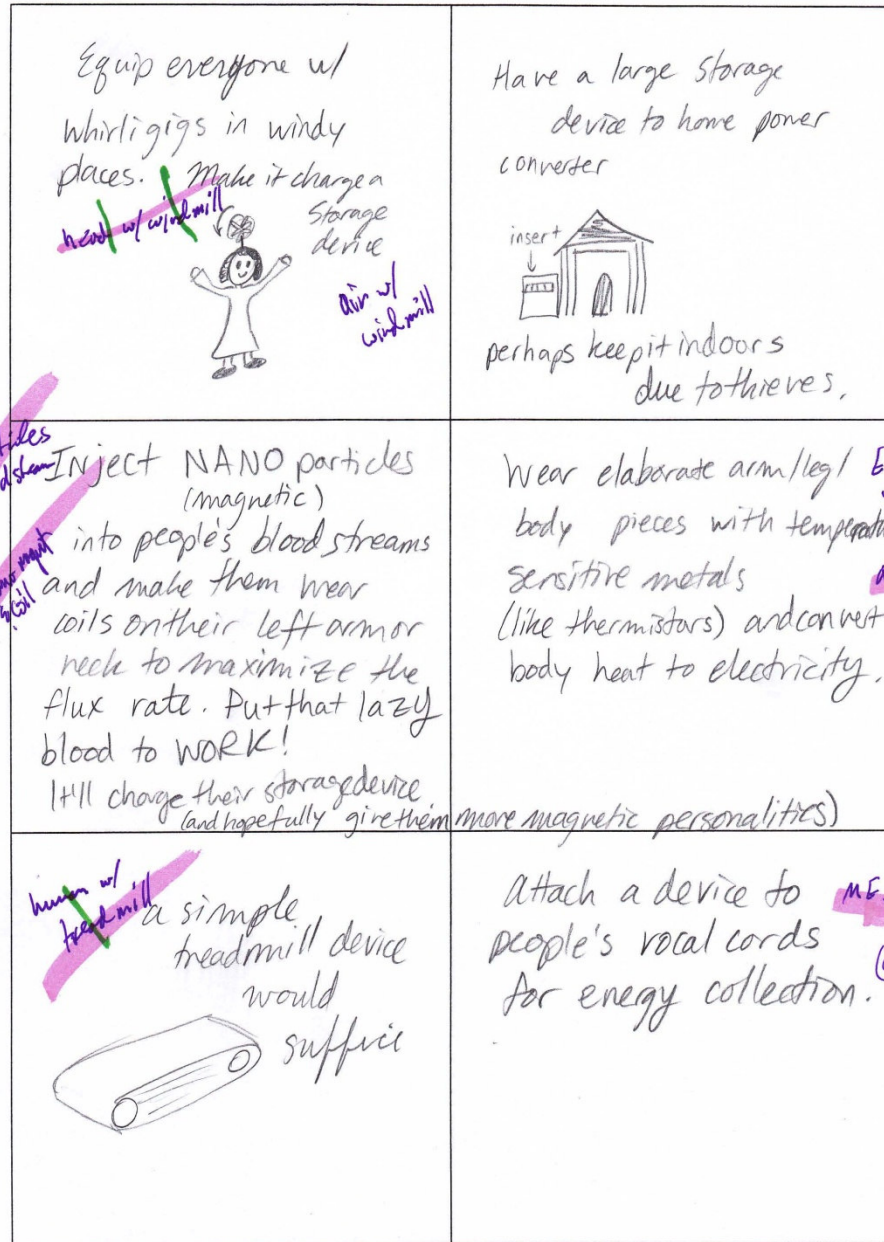 Equip everyone w/
whirligigs in windy
places. Make it charge a
storage
device
head w/ windmill
air w/
windmill
Have a large storage
device to home power
converter
insert
perhaps keep it indoors
due to thieves.
Inject NANO particles
(magnetic)
into people's blood streams
and make them wear
coils on their left arm or
neck to maximize the
flux rate. Put that lazy
blood to WORK!
It'll charge their storage device
(and hopefully give them more magnetic personalities)
coil
Wear elaborate arm/leg/
body pieces with temperature
sensitive metals
(like thermistors) and convert
body heat to electricity.
human w/
treadmill
a simple
treadmill device
would
suffice
Attach a device to
people's vocal cords
for energy collection.
ME